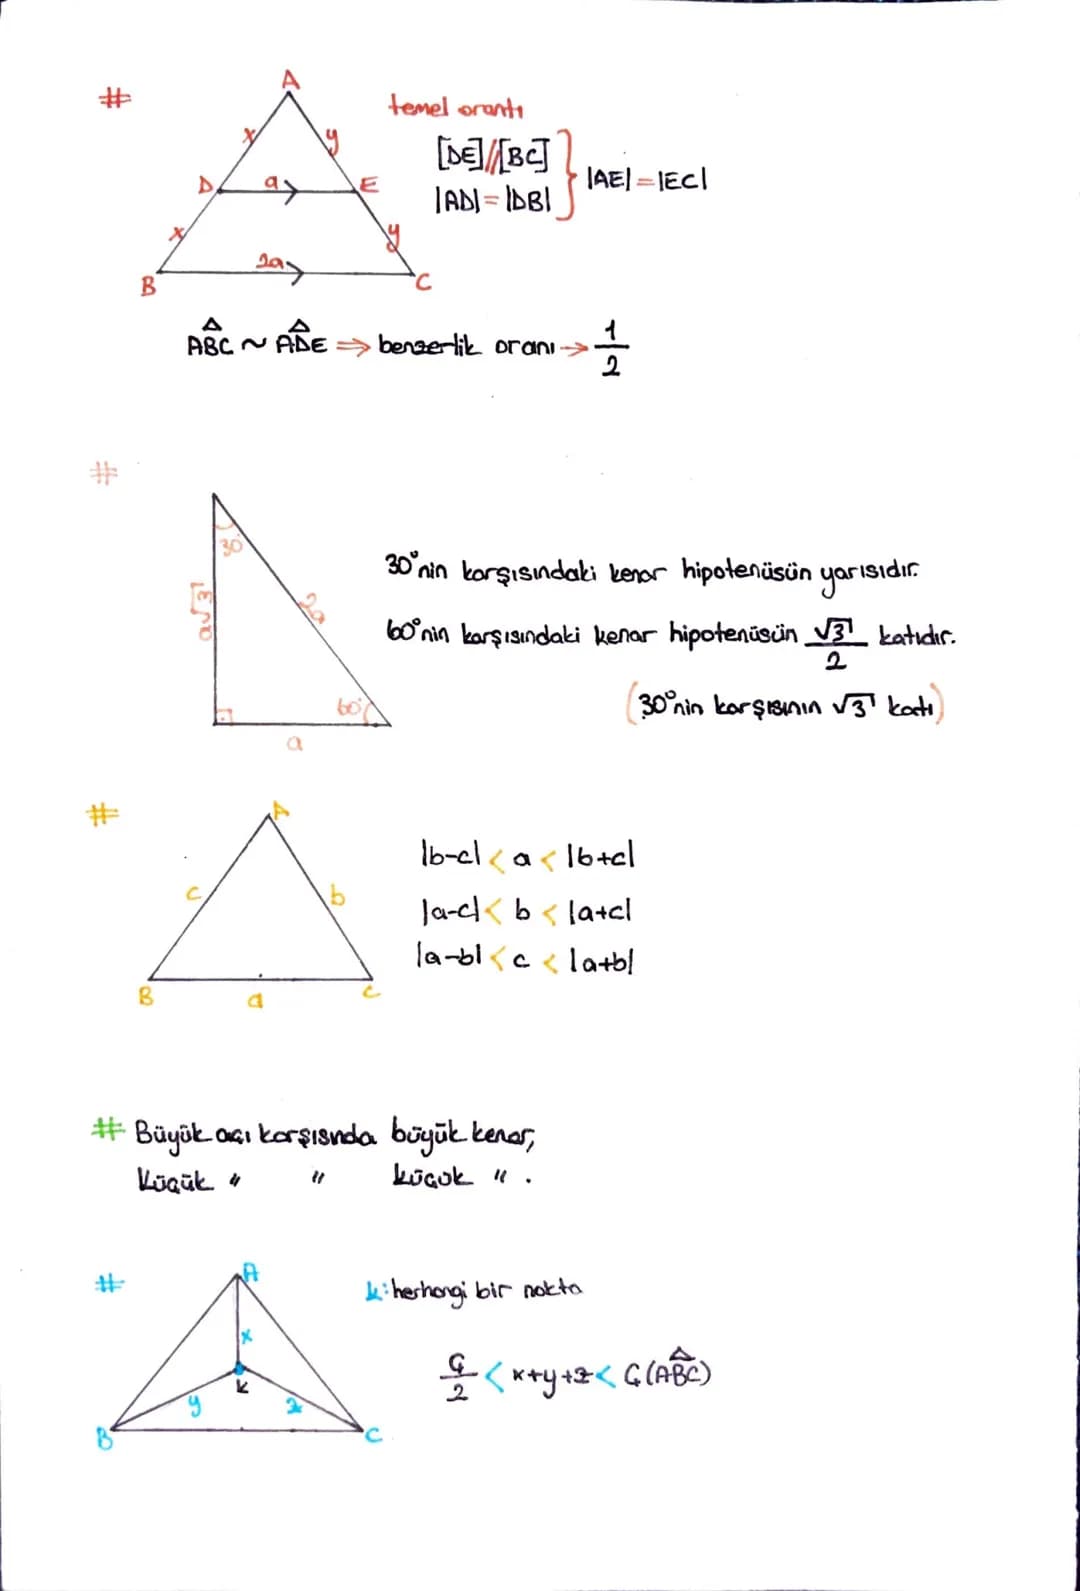 #
A
temel orantı
x
y
[DE]//[BC]
|AD|=|DB|
} |AE|=|EC|
D
a
E
x
y
2a
B
C
ABC ~ ADE ⇒ benzerlik oranı → 1/2
#
30
a√3
2a
60°
a
30°nin karşısındaki kenar hipotenüsün yarısıdır.
60°nin karşısındaki kenar hipotenüsün √3/2 katıdır.
(30°nin karşısının √3 katı)
#
A
c
b
B
a
C
|b-c| < a < |b+c|
|a-c| < b < |a+c|
|a-b| < c < |a+b|
# Büyük açı karşısında büyük kenar,
Küçük " " küçük " .
#
A
x
K
y
z
B
C
k: herhangi bir nokta
Ç/2 < x+y+z < Ç(ABC)